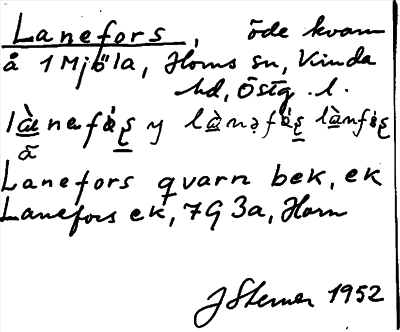 Lanefors, öde kvarn
å 1 Mjöla, Horns sn, Kinda
hd, Östg. l.
Lanefors qvarn bek, ek
Lanefors ek, 7G 3a, Horn
J Sterner 1952